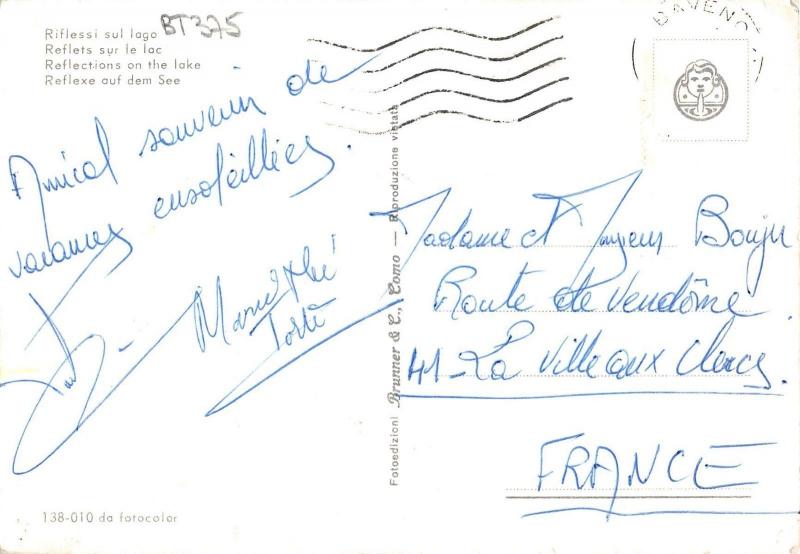 Riflessi sul lago
Reflets sur le lac
Reflections on the lake
Reflexe auf dem See
BT375
BAVENO
Amical souvenir de
vacances ensoleillées.
Madame et Monsieur Bouju
Route de Vendôme
41-La Ville aux Clercs
FRANCE
Fotoedizioni Brunner & C., Como — Riproduzione vietata
138-010 da fotocolor